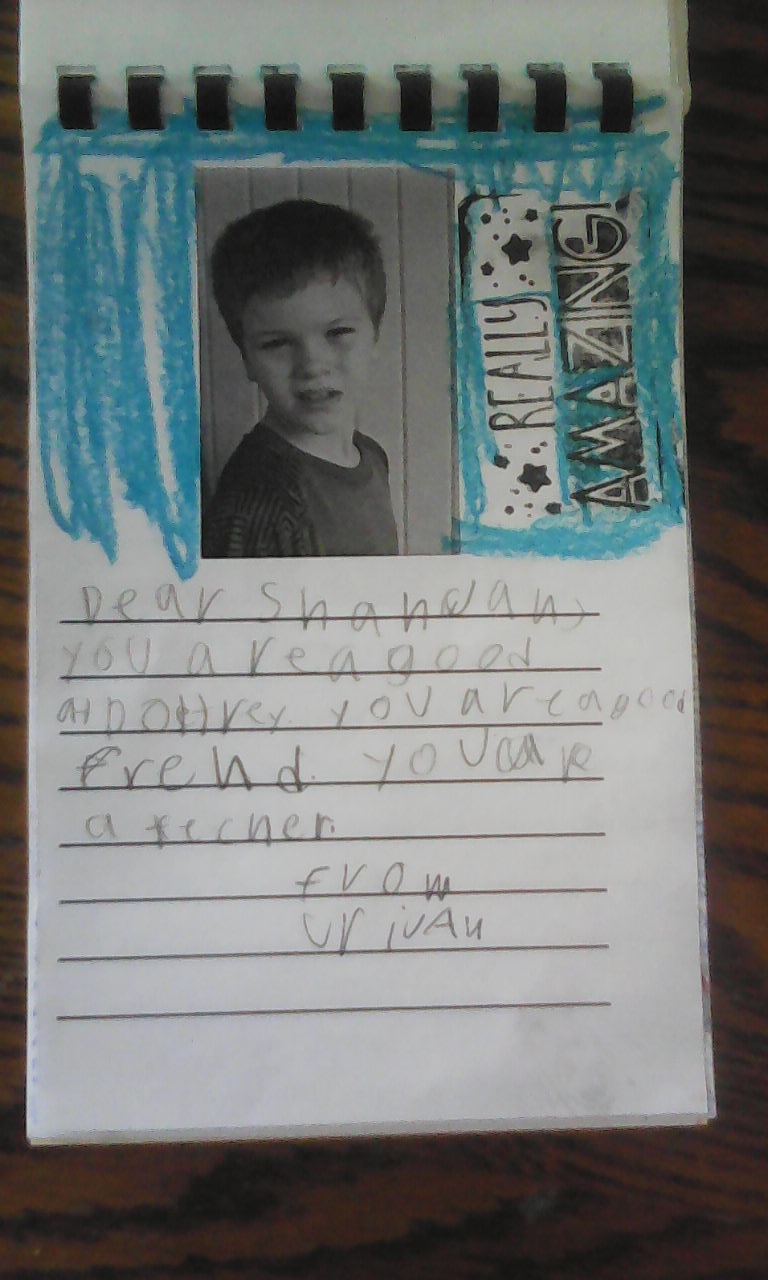 REALLY
AMAZING!
Dear Shanwan,
you are a good
at pottrey. you are a good
frend. you are
a techer.
from
UrivAn